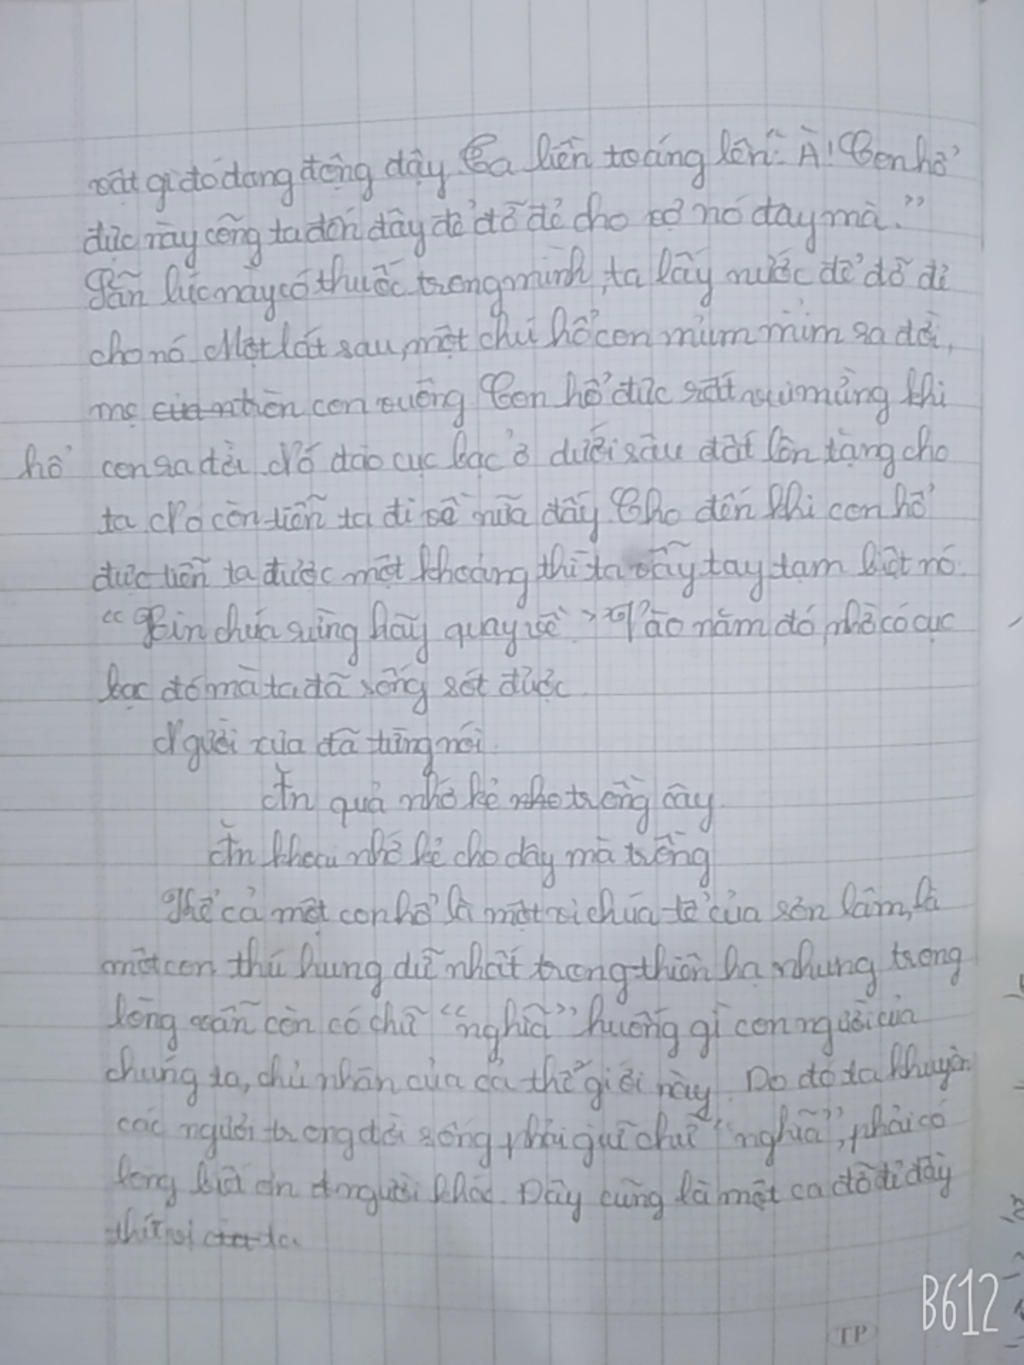 vật gì đó đang động dậy Ta liền toáng lên: "À! Con hổ
đực này cõng ta đến đây để đỡ đẻ cho vợ nó đây mà."
Sẵn lúc này có thuốc trong mình, ta lấy nước để đỡ đẻ
cho nó. Một lát sau, một chú hổ con mũm mĩm ra đời,
mẹ tròn con vuông Con hổ đực rất vui mừng khi
hổ con ra đời. Nó đào cục bạc ở dưới sâu đất lên tặng cho
ta. Nó còn tiễn ta đi về nữa đấy Cho đến khi con hổ
đực tiễn ta được một khoảng thì ta vẫy tay tạm biệt nó.
"Xin chúa rừng hãy quay về." Vào năm đó, nhờ có cục
bạc đó mà ta đã sống sót được.
Người xưa đã từng nói.
Ăn quả nhớ kẻ trồng cây.
Ăn khoai nhớ kẻ cho dây mà trồng
Thế cả một con hổ là một vị chúa tể của sơn lâm, là
một con thú hung dữ nhất trong thiên hạ nhưng trong
lòng vẫn còn có chữ "nghĩa" huống gì con người của
chúng ta, chủ nhân của cả thế giới này. Do đó ta khuyên
các người trong đời sống phải giữ chữ "nghĩa", phải có
lòng biết ơn người khác. Đây cũng là một ca đỡ đẻ đầy
thú vị của ta.
TP
B612